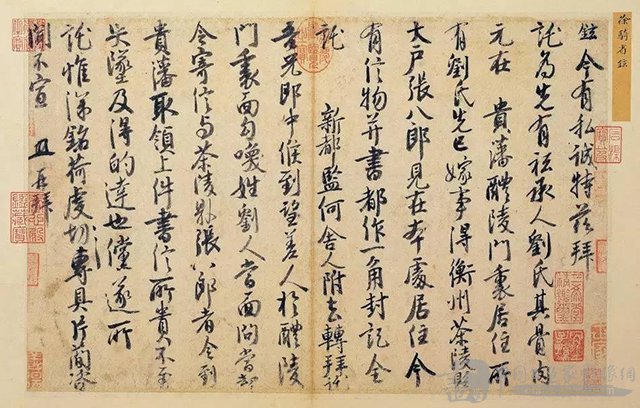 徐騎省鉉
鉉今有私誠特茲拜
託為先有祗承人劉氏其骨肉
元在 貴藩醴陵門裏居住所
有劉氏先已嫁事得衡州茶陵縣
大戶張八郎見在本處居住今
有信物并書都作一角封記全
託 新都監何舍人附去轉拜託
吾兄郎中候到望差人於醴陵
門裏面勾喚姓劉人當面問當卻
令寄信與茶陵縣張八郎者令到
貴藩取領上件書信所貴不至
失墜及得的達也儻遂所
託惟深銘荷虔切專具片簡咨
聞不宣 再拜